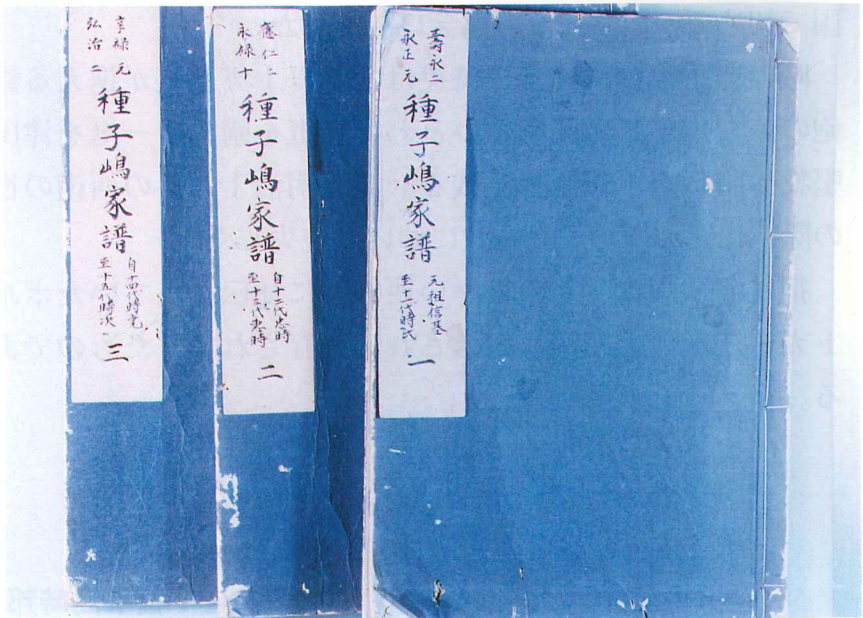 壽永二
永正元
種子嶋家譜
元祖信基
至十一代時氏
一
應仁二
永禄十
種子嶋家譜
自十二代忠時
至十三代恵時
二
享禄元
弘治二
種子嶋家譜
自十四代時尭
至十五代時次
三